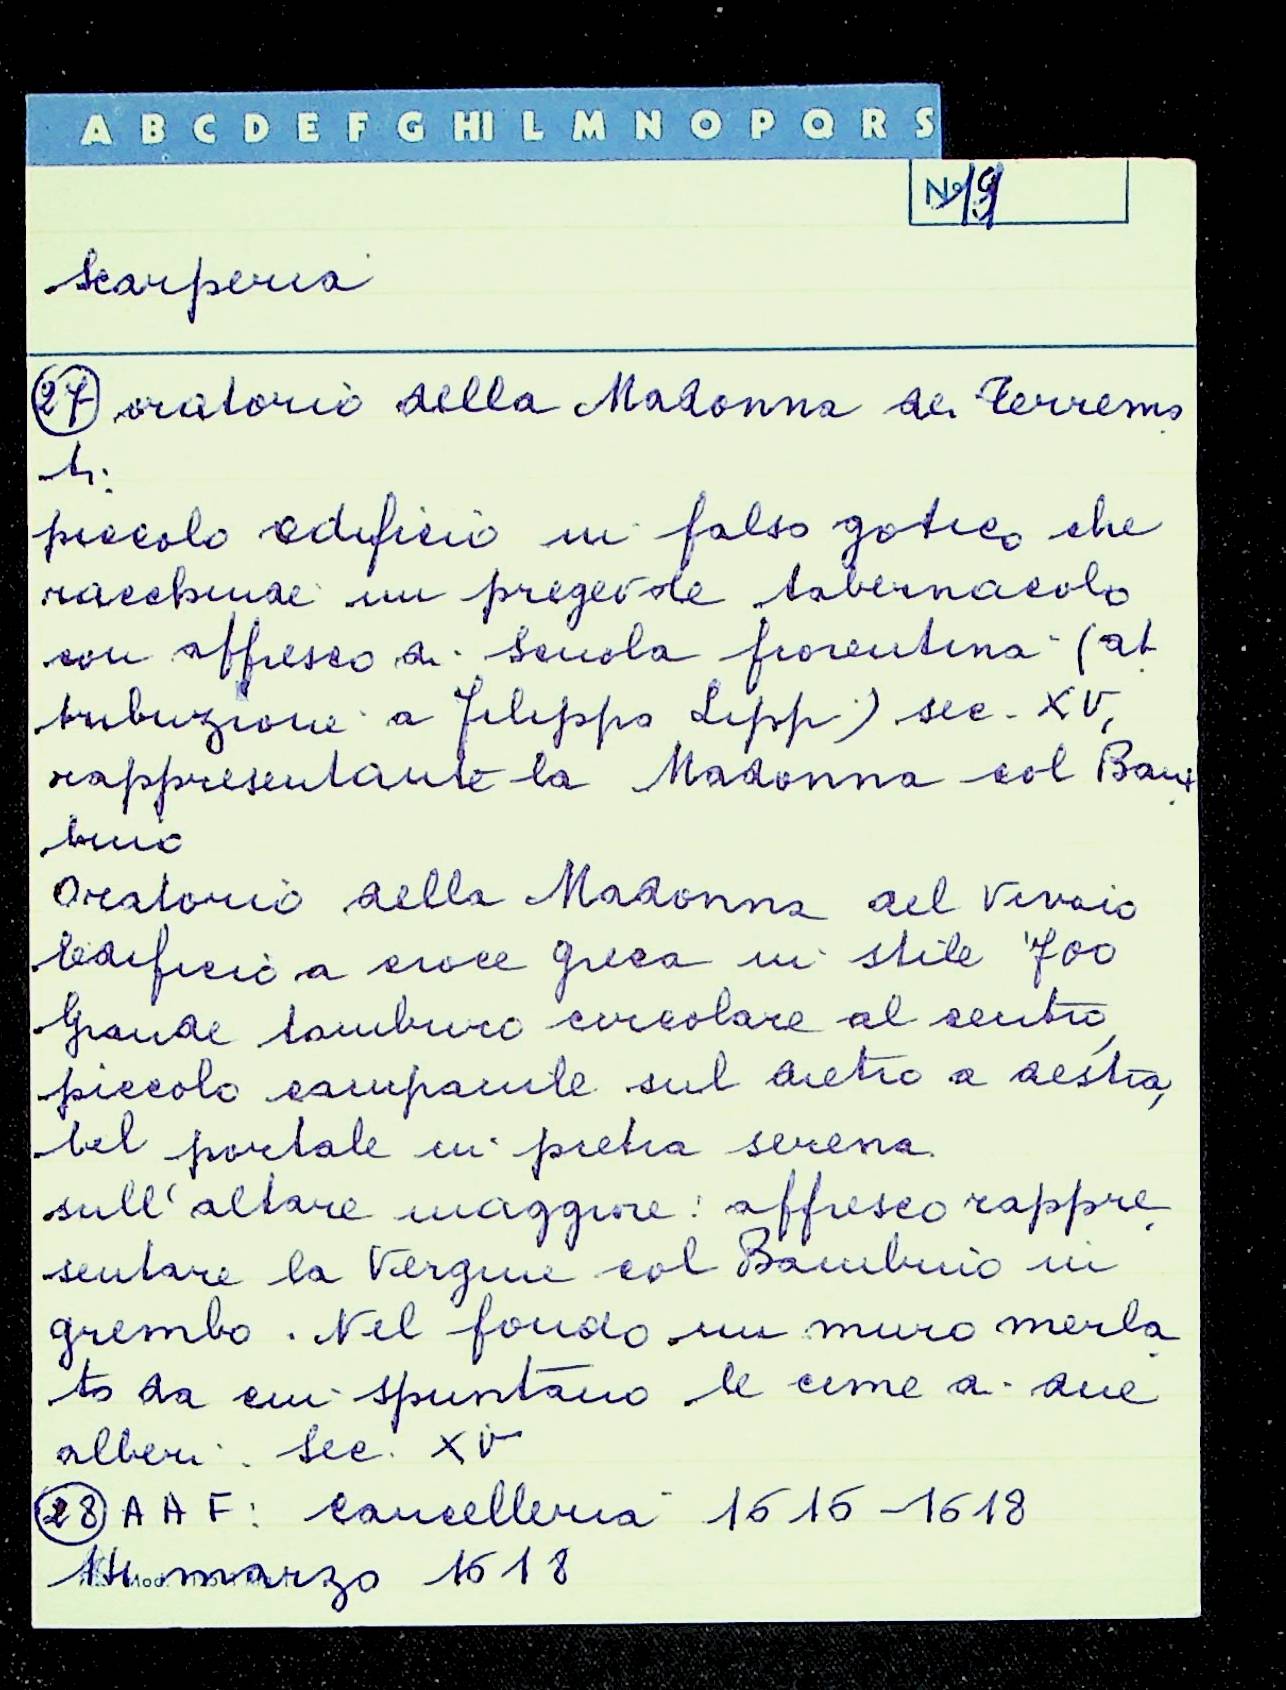 A B C D E F G HI L M N O P Q R S
No 19
Scarperia
27 oratorio della Madonna dei Terremo
ti:
piccolo edificio in falso gotico che
racchiude un pregevole tabernacolo
con affresco di Scuola fiorentina (at
tribuzione a Filippo Lippi) sec. XV,
rappresentante la Madonna col Bam
bino
Oratorio della Madonna del Vivaio
Edificio a croce greca in stile '700
Grande tamburo circolare al centro,
piccolo campanile sul dietro a destra,
bel portale in pietra serena.
sull'altare maggiore: affresco rappre
sentare la Vergine col Bambino in
grembo. Nel fondo un muro merla
to da cui spuntano le cime di due
alberi. Sec. XV
28 A A F: Cancelleria 1616-1618
14 marzo 1618